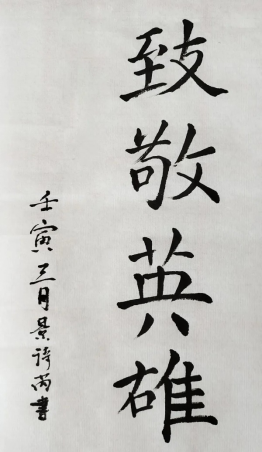 致敬英雄
壬寅三月景诗丙書